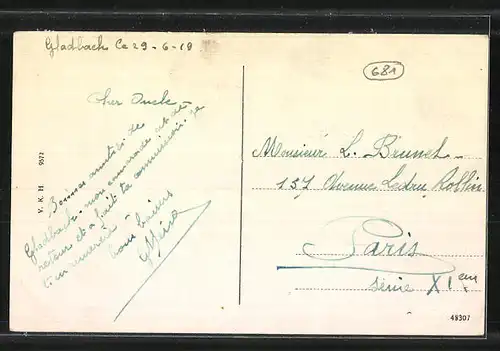 Gladbach Ce 29-6-19
681
Cher Oncle
Bonnes amitiés de
Gladbach. mon camarade est de
retour et a fait ta commission. je
t'en remercie
bons baisers
Monsieur L. Brunet
137 Avenue Ledru Rollin
Paris
XI em
V. K. H 9572
49307